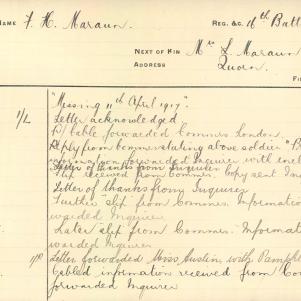 NAME F. H. Maraun. REG. &C. 16th Batt
NEXT OF KIN Mrs L. Maraun
ADDRESS Quorn.
"Missing 11th April 1917."
1/L Letter acknowledged
cable forwarded Commrs London.
Reply from Commrs stating above soldier "P
forwarded Inquirer with
Letter of thanks from Inquirer
Slip received from Commr. Copy sent In
Letter of thanks from Inquirer
Further slip from Commr. Information
warded Inquirer
Later slip from Commr. Informat
warded Inquirer
Letter forwarded Miss Austin with Pamph
Cabled information received from Com
forwarded Inquirer